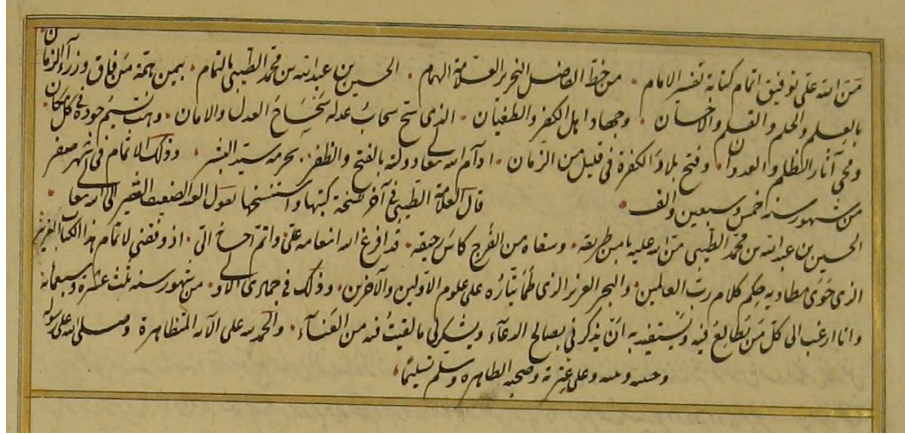 من الله على توفيق اتمام كتابة تفسير الامام من خط الفاضل النحرير العلامة الهمام الحسين بن عبد الله بن محمد الطيبى بالتمام بيمن همة من فاق وزراء الزمان
بالعلم والحلم والقلم والاحسان وجهاد اهل الكفر والطغيان الذى سح سحاب عدله العدل والامان وهبت نسيم جوده فى كل مكان
ومحى آثار الظلم والعدوان وفتح بلاد الكفرة فى قليل من الزمان ادام الله سعادة دولته بالفتح والظفر بحرمة سيد البشر وذلك الاتمام فى اشهر صفر
من شهور سنة خمس وسبعين والف قال العلامة الطيبى فى آخر نسخة كتبها واستنسخها يقول العبد الضعيف الفقير الى الله تعالى
الحسين بن عبد الله بن محمد الطيبى من الله عليه بامن طريقه وسقاه من الفرح كاس رحيقه قد افرغ الله انعامه على واتم احسانه الى اذ وفقنى لاتمام هذا الكتاب العزيز
الذى حوى مطاويه حكم كلام رب العالمين والبحر الغزير الذى طما تياره على علوم الاولين والآخرين وذلك فى جمادى الاولى من شهور سنة ثلث عشرة وسبعمائة
وانا ارغب الى كل من يطالع فيه ويستفيد به ان يذكرنى بصالح الدعاء ويشكر لى ما لقيت فيه من العناء والحمد لله على آلائه المتظاهرة وصلى الله على رسوله
وعلى عترته وصحبه الطاهرة وسلم تسليما